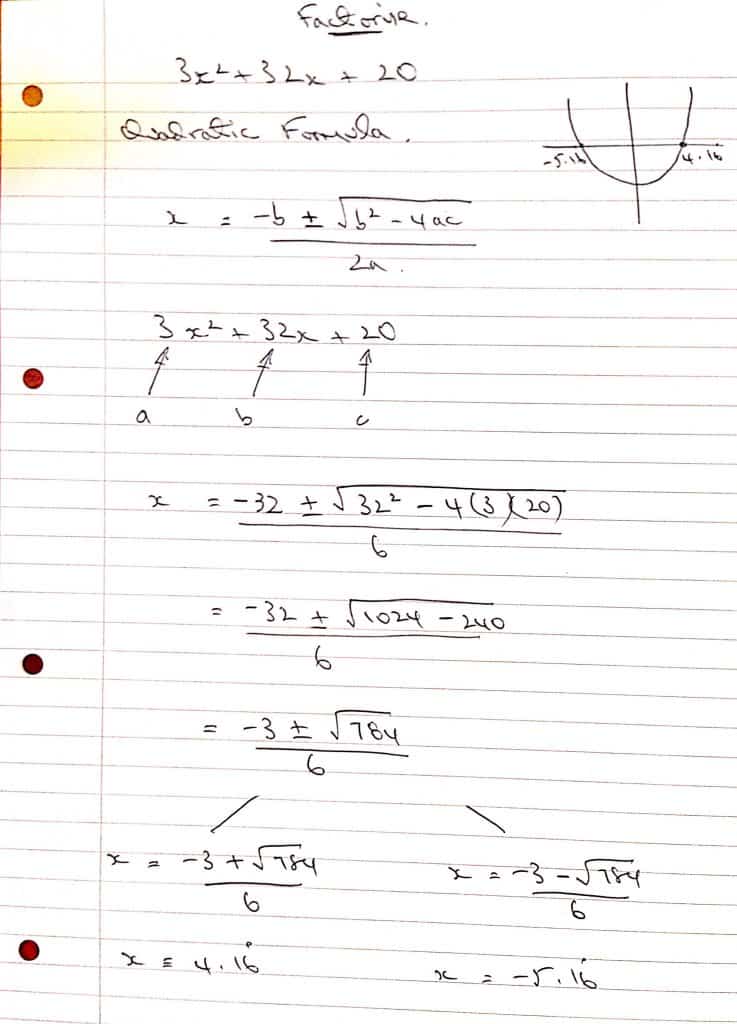 Factorise.
3x² + 32x + 20
Quadratic Formula.
-5.16 4.16
x = -b ± √b² - 4ac
2a.
3x² + 32x + 20
a b c
x = -32 ± √32² - 4(3)(20)
6
= -32 ± √1024 - 240
6
= -3 ± √784
6
x = -3 + √784 x = -3 - √784
6 6
x = 4.16̇ x = -5.16̇